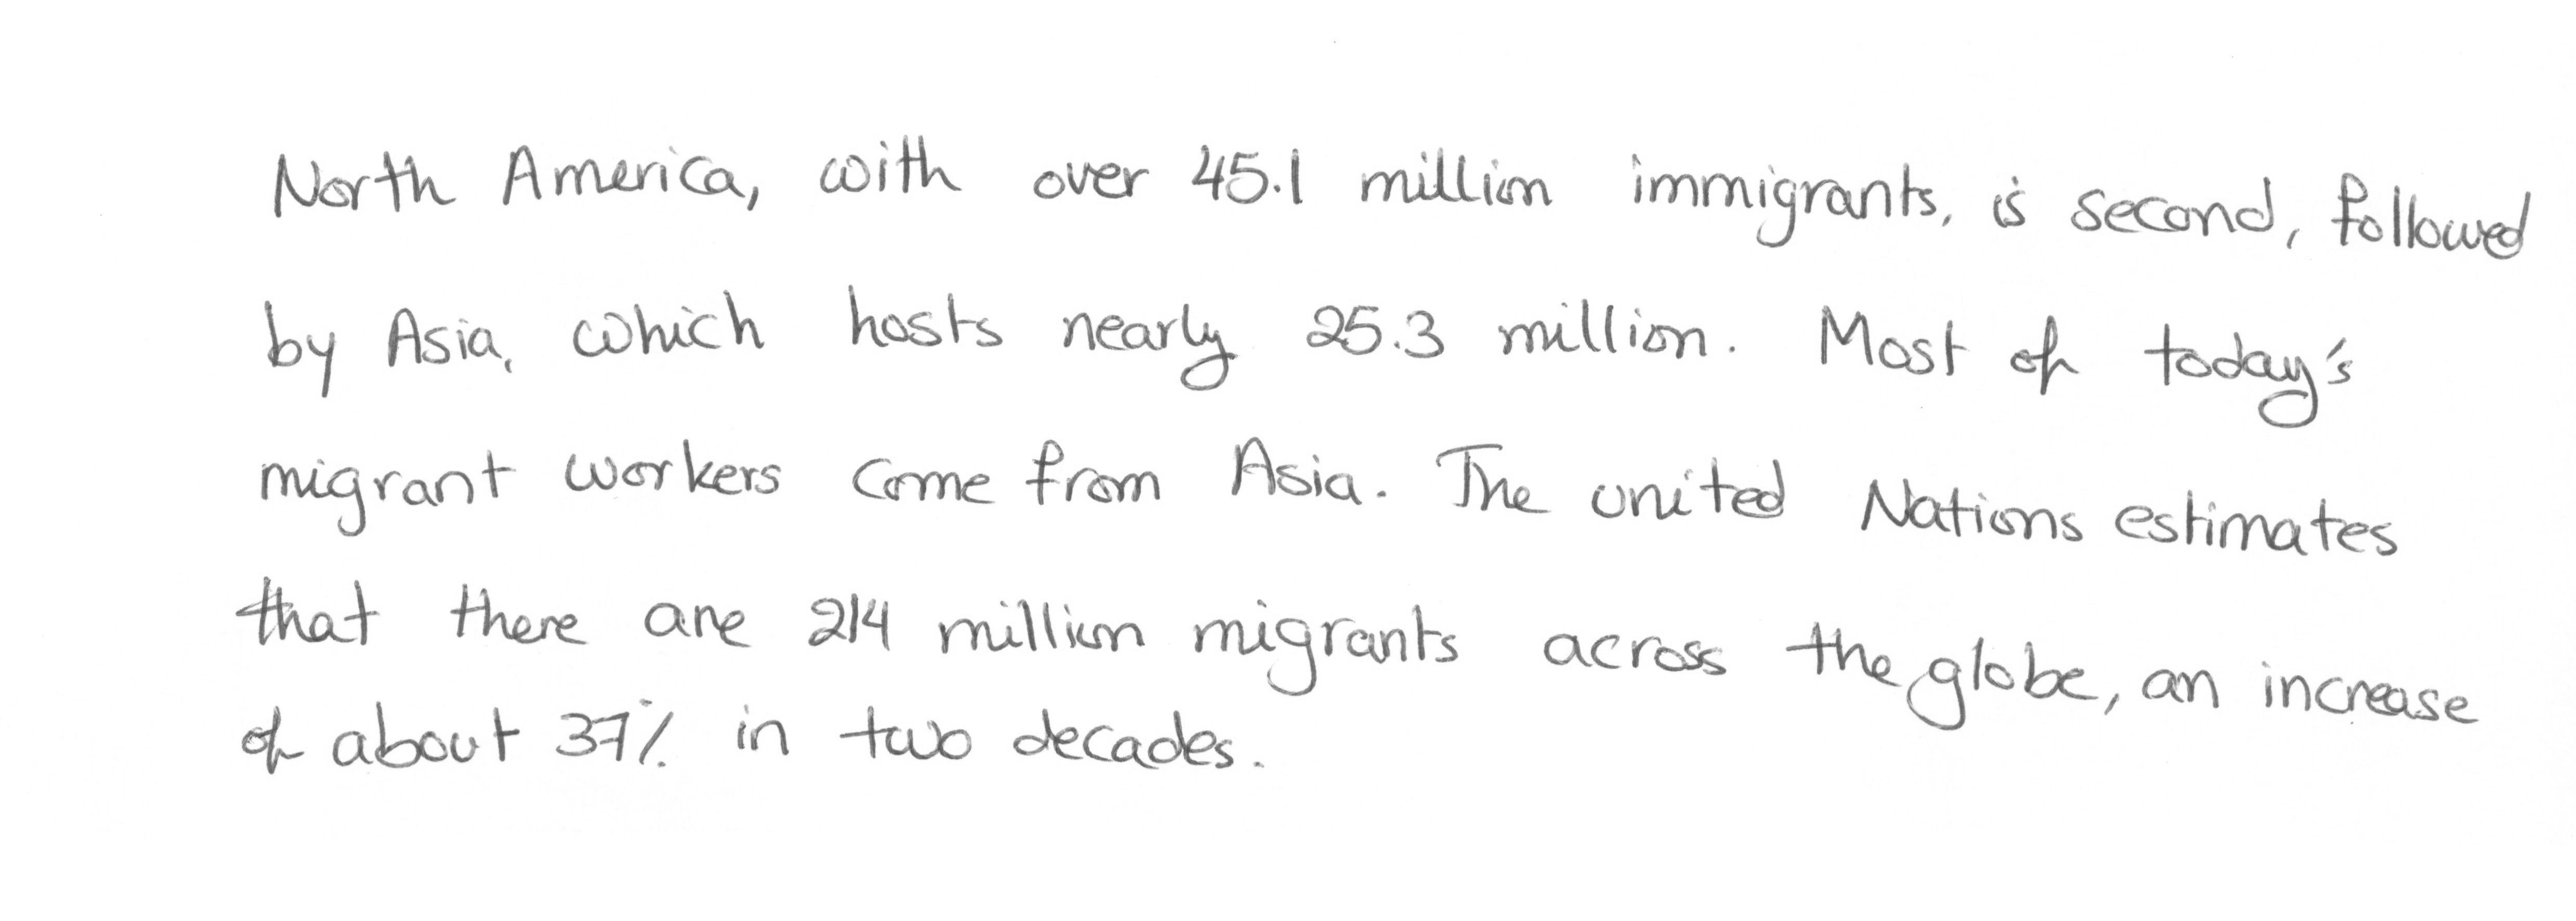 North America, with over 45.1 million immigrants, is second, followed
by Asia, which hosts nearly 25.3 million. Most of today's
migrant workers come from Asia. The united Nations estimates
that there are 214 million migrants across the globe, an increase
of about 37% in two decades.